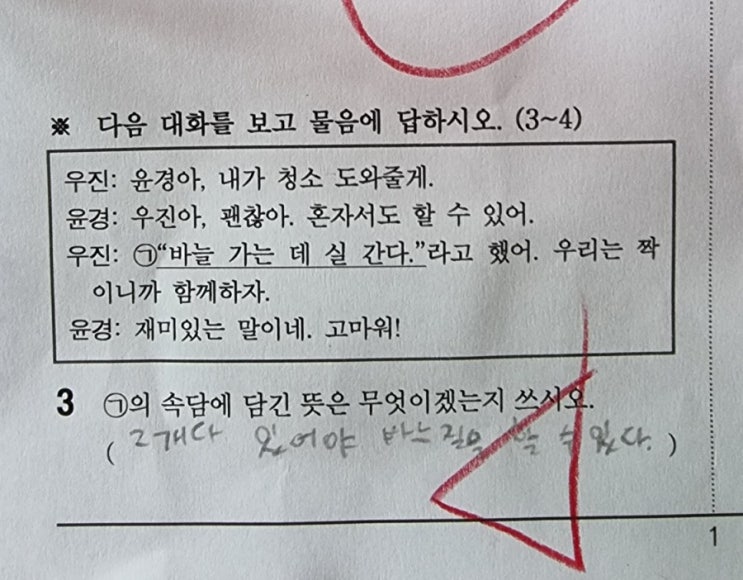 ※ 다음 대화를 보고 물음에 답하시오. (3~4)
우진: 윤경아, 내가 청소 도와줄게.
윤경: 우진아, 괜찮아. 혼자서도 할 수 있어.
우진: ㉠“바늘 가는 데 실 간다.”라고 했어. 우리는 짝
이니까 함께하자.
윤경: 재미있는 말이네. 고마워!
3 ㉠의 속담에 담긴 뜻은 무엇이겠는지 쓰시오.
( 2개다 있어야 바느질을 할 수 있다. )
1